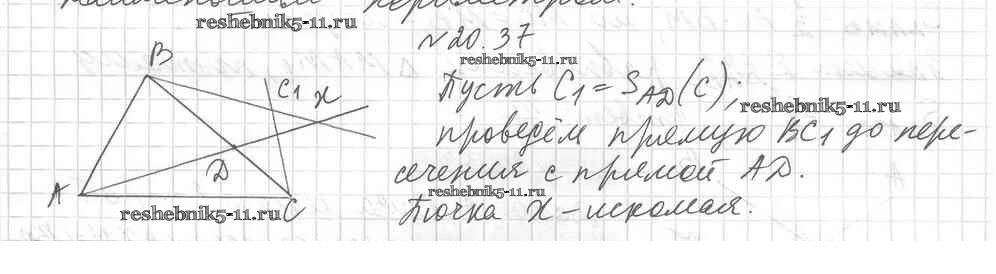 наименьшим периметром.
reshebnik5-11.ru
№20.37
reshebnik5-11.ru
Пусть C₁ = S_AD(C);
reshebnik5-11.ru
проведём прямую BC₁ до пере-
сечения с прямой AD.
reshebnik5-11.ru
Точка X – искомая.
B
C1
X
D
A
C
reshebnik5-11.ru